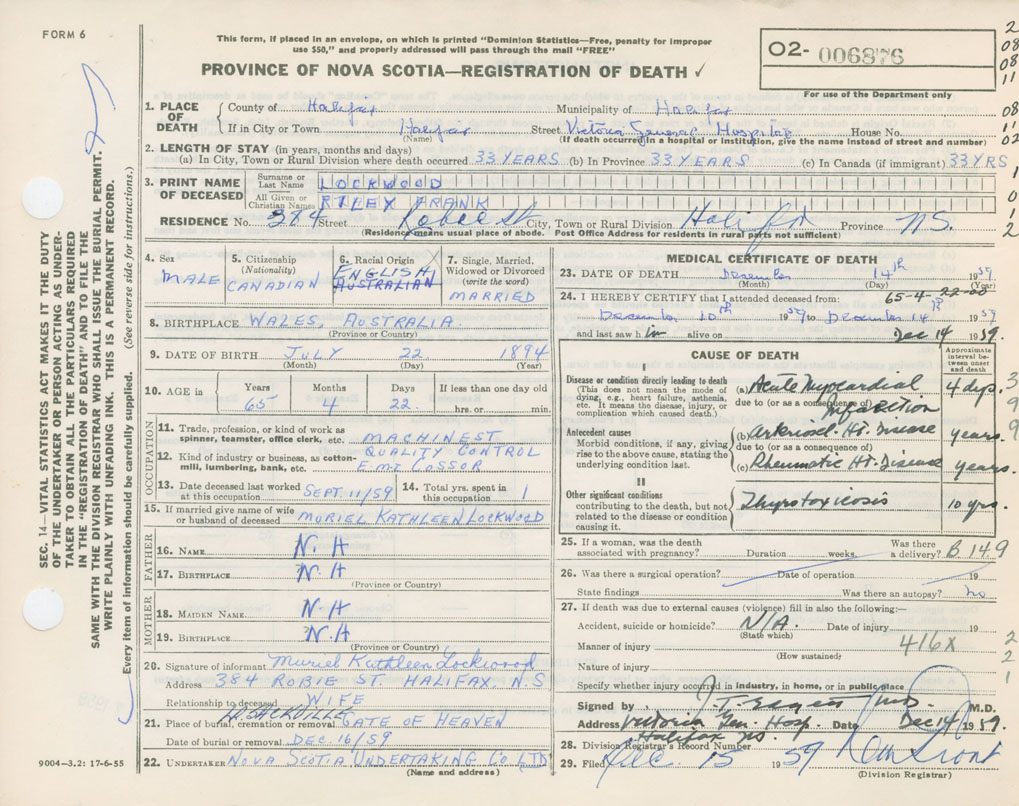 FORM 6
This form, if placed in an envelope, on which is printed "Dominion Statistics—Free, penalty for improper
use $50," and properly addressed will pass through the mail "FREE"
PROVINCE OF NOVA SCOTIA—REGISTRATION OF DEATH ✓
O2- 006876
For use of the Department only
2
08
08
11
08
11
02
1
0
1
2
1. PLACE OF DEATH { County of Halifax Municipality of Halifax
If in City or Town Halifax Street Victoria General Hospital House No.
(Name) (If death occurred in a hospital or institution, give the name instead of street and number)
2. LENGTH OF STAY (in years, months and days)
(a) In City, Town or Rural Division where death occurred 33 YEARS (b) In Province 33 YEARS (c) In Canada (if immigrant) 33 YRS
3. PRINT NAME OF DECEASED { Surname or Last Name LOCKWOOD
All Given or Christian Names RILEY FRANK
RESIDENCE No. 384 Street Robie St City, Town or Rural Division Halifax Province NS.
(Residence means usual place of abode. Post Office Address for residents in rural parts not sufficient)
4. Sex MALE
5. Citizenship (Nationality) CANADIAN
6. Racial Origin ENGLISH AUSTRALIAN
7. Single, Married, Widowed or Divorced (write the word) MARRIED
8. BIRTHPLACE WALES, AUSTRALIA.
(Province or Country)
9. DATE OF BIRTH JULY 22 1894
(Month) (Day) (Year)
10. AGE in Years 65 Months 4 Days 22 If less than one day old hrs. or min.
OCCUPATION
11. Trade, profession, or kind of work as spinner, teamster, office clerk, etc. MACHINEST
QUALITY CONTROL
12. Kind of industry or business, as cotton-mill, lumbering, bank, etc. E.M.I COSSOR
13. Date deceased last worked at this occupation SEPT. 11/59 14. Total yrs. spent in this occupation 1
15. If married give name of wife or husband of deceased MURIEL KATHLEEN LOCKWOOD
FATHER
16. NAME N. A
17. BIRTHPLACE N. A
(Province or Country)
MOTHER
18. MAIDEN NAME N. A
19. BIRTHPLACE N. A
(Province or Country)
20. Signature of informant Muriel Kathleen Lockwood
Address 384 ROBIE ST. HALIFAX, N.S
Relationship to deceased WIFE
21. Place of burial, cremation or removal SACKVILLE GATE OF HEAVEN
Date of burial or removal DEC. 16/59
22. UNDERTAKER NOVA SCOTIA UNDERTAKING CO LTD
(Name and address)
9004—3.2: 17-6-55
MEDICAL CERTIFICATE OF DEATH
23. DATE OF DEATH December 14th 1959
(Month) (Day) (Year)
65-4-22-00
24. I HEREBY CERTIFY that I attended deceased from:
December 10th 1959 to December 14th
and last saw him alive on Dec 14 1959.
CAUSE OF DEATH
Approximate interval between onset and death
I
Disease or condition directly leading to death
(This does not mean the mode of dying, e.g., heart failure, asthenia, etc. It means the disease, injury, or complication which caused death.)
(a) Acute Myocardial Infarction 4 days.
due to (or as a consequence of)
Antecedent causes
Morbid conditions, if any, giving rise to the above cause, stating the underlying condition last.
(b) Arteriosel. Ht. Disease years.
due to (or as a consequence of)
(c) Rheumatic Ht. Disease years.
II
Other significant conditions
contributing to the death, but not related to the disease or condition causing it.
Thyrotoxicosis 10 yrs.
3
9
9
25. If a woman, was the death associated with pregnancy? Duration weeks. Was there a delivery? B. 14.9
26. Was there a surgical operation? Date of operation 19
State findings Was there an autopsy? no
27. If death was due to external causes (violence) fill in also the following:—
Accident, suicide or homicide? N/A. Date of injury 19
(State which)
Manner of injury 416X
(How sustained)
Nature of injury
Specify whether injury occurred in industry, in home, or in public place
2
2
1
Signed by M.D.
Address Victoria Gen. Hosp. Date Dec 14 1959.
Halifax NS.
28. Division Registrar's Record Number
29. Filed Dec. 15 1959
(Division Registrar)
SEC. 14—VITAL STATISTICS ACT MAKES IT THE DUTY
OF THE UNDERTAKER OR PERSON ACTING AS UNDER-
TAKER TO OBTAIN ALL THE PARTICULARS REQUIRED
IN THE "REGISTRATION OF DEATH" AND TO FILE THE
SAME WITH THE DIVISION REGISTRAR WHO SHALL ISSUE THE BURIAL PERMIT.
WRITE PLAINLY WITH UNFADING INK. THIS IS A PERMANENT RECORD.
Every item of information should be carefully supplied. (See reverse side for instructions.)